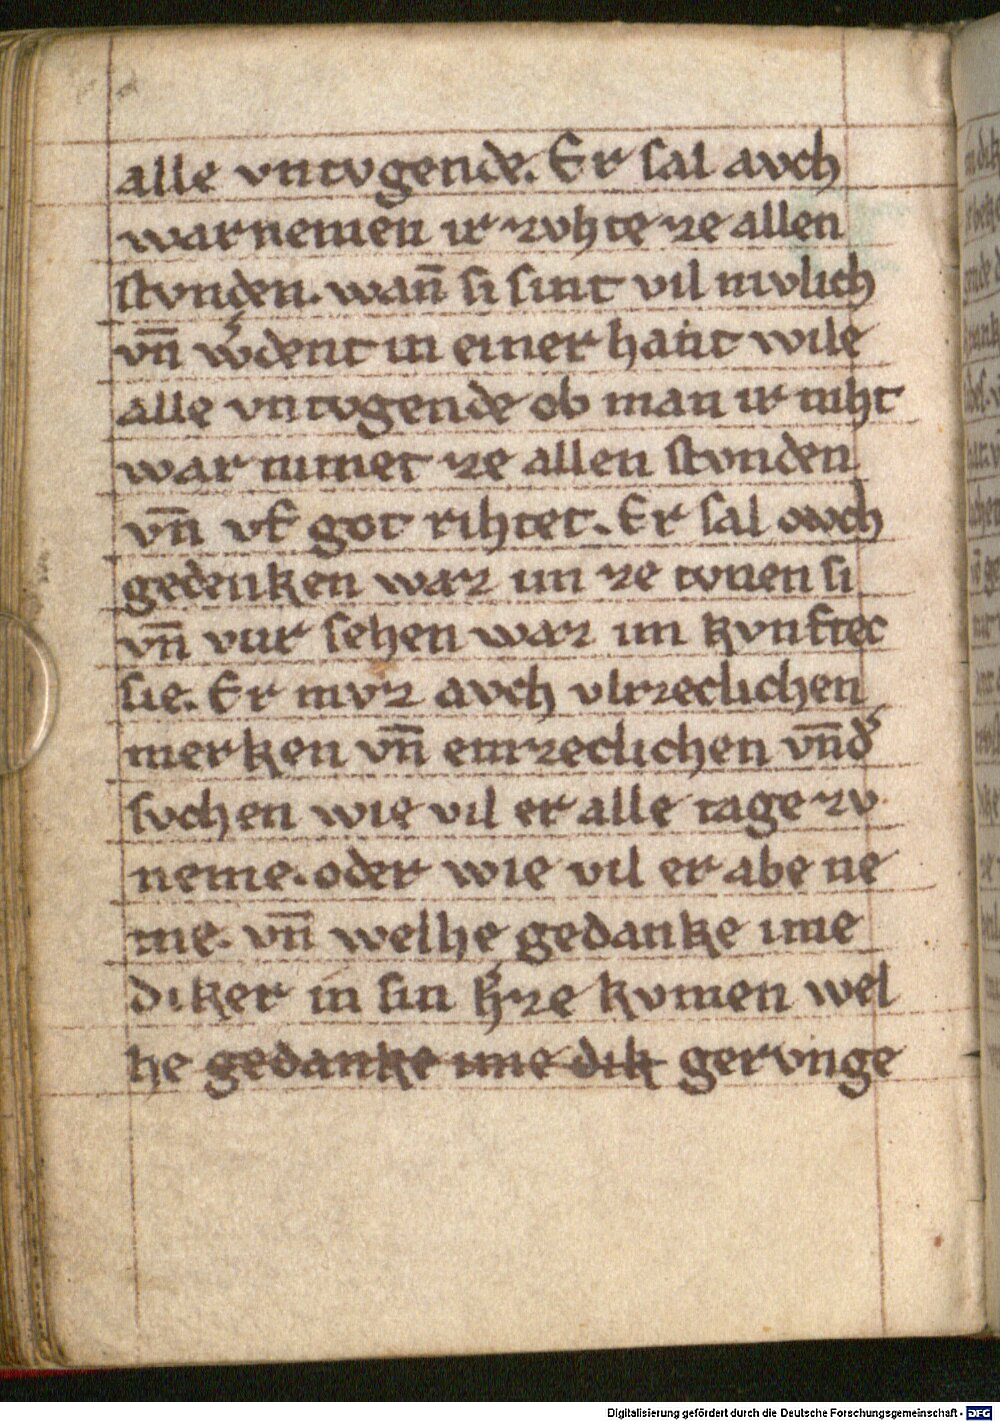 alle vntvgende. Er sal avch
warnemen ir zvhte ze allen
stvnden. wan̄ si sint vil nivlich
vn̄ wͣdent in einer hant wile
alle vntvgende ob man ir niht
war nimet ze allen stvnden
vn̄ vf got rihtet. Er sal owch
gedenken waz im ze tonen si
vn̄ vur sehen waz im kvnftec
sie. Er mvz avch vlizeclichen
merken vn̄ emzeclichen vn̄d
svchen wie vil er alle tage zv
neme. oder wie vil er abe ne
me. vn̄ welhe gedanke ime
diker in sin h̄ze kvmen wel
he gedanke ime dik gervnge
Digitalisierung gefördert durch die Deutsche Forschungsgemeinschaft - DFG